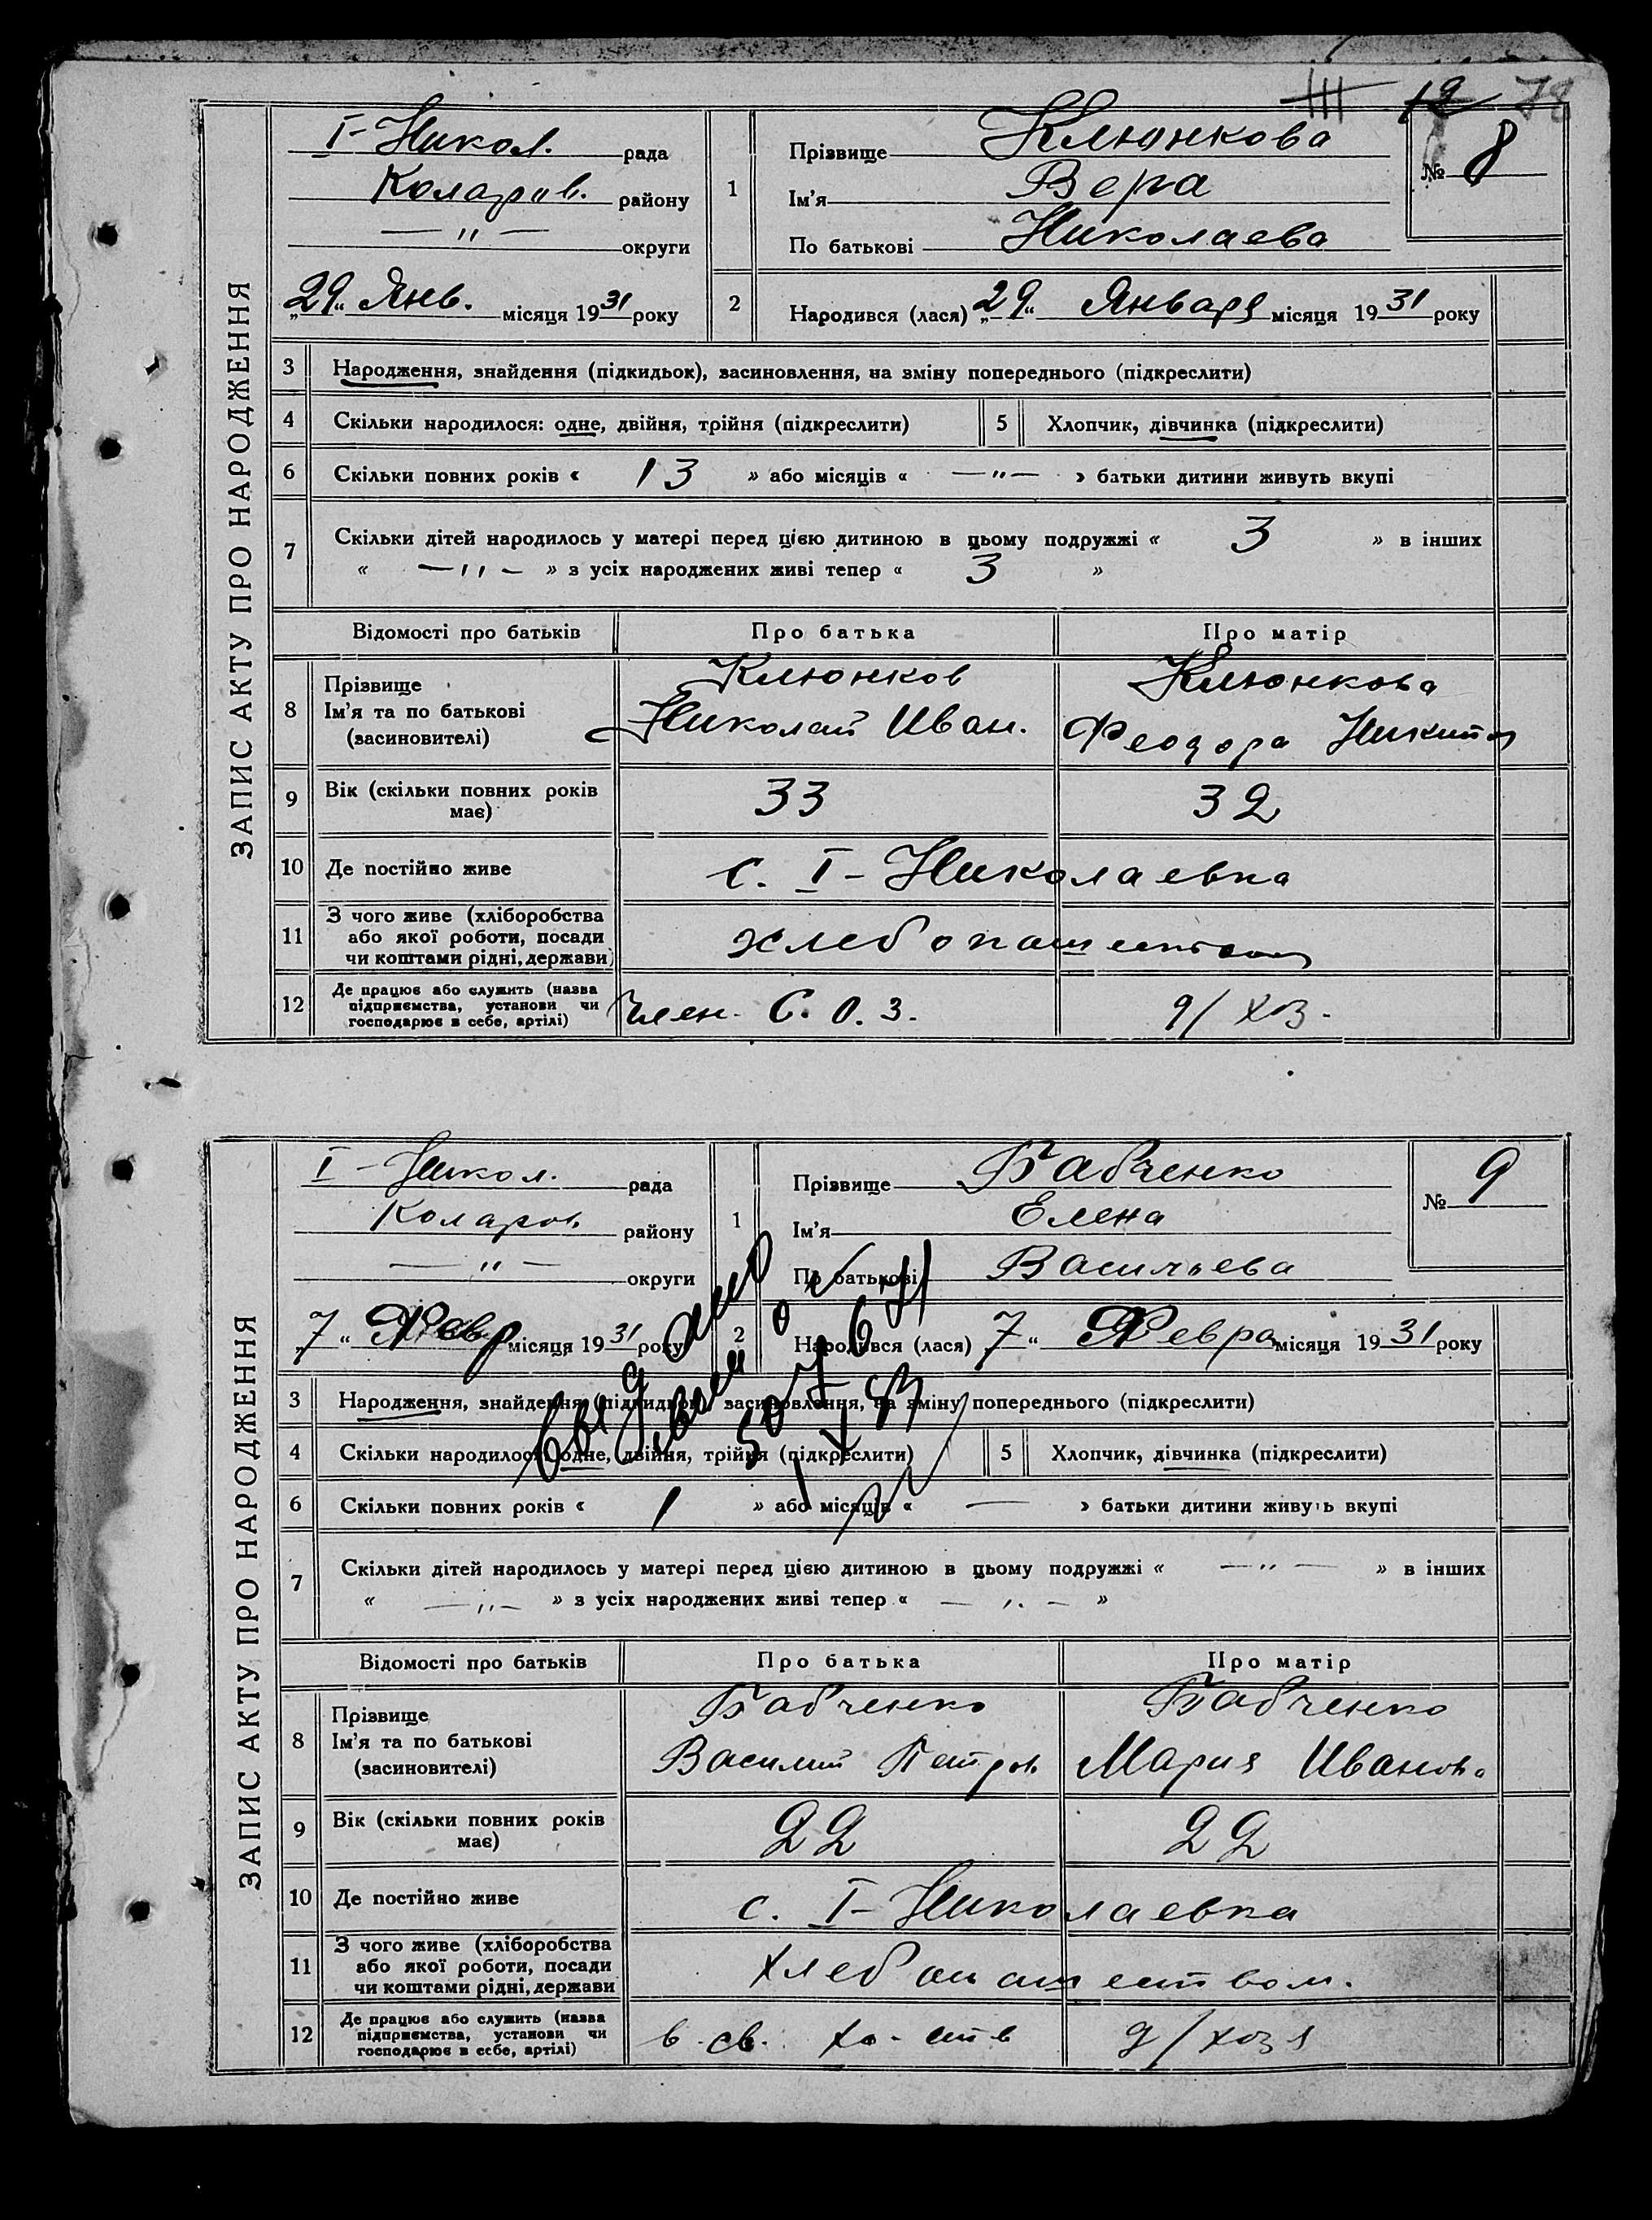 III 12 78
ЗАПИС АКТУ ПРО НАРОДЖЕННЯ
I-Никол. рада
Коларов. района
— " — округи
„29“ Янв. місяця 1931 року
1 Прізвище Клюнкова
Ім'я Вера
По батькові Николаева
№ 8
2 Народився (лася) „29“ Января місяця 1931 року
3 Народження, знайдення (підкидьок), засиновлення, на зміну попереднього (підкреслити)
4 Скільки народилося: одне, двійня, трійня (підкреслити) 5 Хлопчик, дівчинка (підкреслити)
6 Скільки повних років « 13 » або місяців « — " — » батьки дитини живуть вкупі
7 Скільки дітей народилось у матері перед цією дитиною в цьому подружжі « 3 » в інших
« — " — » з усіх народжених живі тепер « 3 »
Відомості про батьків Про батька Про матір
8 Прізвище Клюнков Клюнкова
Ім'я та по батькові Николай Иван. Феодора Никит
(засиновителі)
9 Вік (скільки повних років має) 33 32
10 Де постійно живе с. I-Николаевка
11 З чого живе (хліборобства
або якої роботи, посади
чи коштами рідні, держави)
хлебопашеством
12 Де працює або служить (назва
підприємства, установи чи
господарює в себе, артілі)
член С.О.З. д/хоз.
ЗАПИС АКТУ ПРО НАРОДЖЕННЯ
I-Никол. рада
Коларов району
— " — округи
„7“ Февр місяця 1931 року
1 Прізвище Бабченко
Ім'я Елена
По батькові Васильева
№ 9
2 Народився (лася) „7“ Февра місяця 1931 року
3 Народження, знайдення (підкидьок), засиновлення, на зміну попереднього (підкреслити)
4 Скільки народилося: одне, двійня, трійня (підкреслити) 5 Хлопчик, дівчинка (підкреслити)
6 Скільки повних років « 1 » або місяців « — » батьки дитини живуть вкупі
7 Скільки дітей народилось у матері перед цією дитиною в цьому подружжі « — " — » в інших
« — " — » з усіх народжених живі тепер « — " — »
Відомості про батьків Про батька Про матір
8 Прізвище Бабченко Бабченко
Ім'я та по батькові Василий Петров Мария Иванова
(засиновителі)
9 Вік (скільки повних років має) 22 22
10 Де постійно живе с. I-Николаевка
11 З чого живе (хліборобства
або якої роботи, посади
чи коштами рідні, держави
хлебопашеством.
12 Де працює або служить (назва
підприємства, установи чи
господарює в себе, артілі)
в св. хо-ств д/хозя